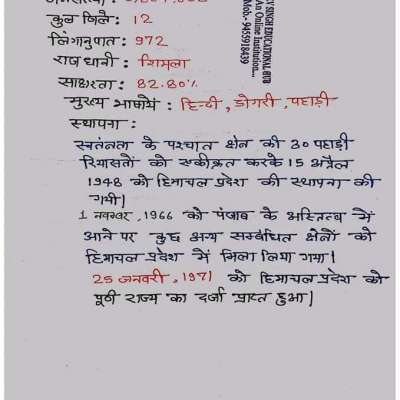 कुल जिले : 12
लिंगानुपात : 972
राजधानी : शिमला
साक्षरता : 82.80%
मुख्य भाषायें : हिन्दी, डोगरी, पहाड़ी
स्थापना :
स्वतंत्रता के पश्चात क्षेत्र की 30 पहाड़ी
रियासतों को एकीकृत करके 15 अप्रैल
1948 को हिमाचल प्रदेश की स्थापना की
गयी।
1 नवम्बर, 1966 को पंजाब के अस्तित्व में
आने पर कुछ अन्य सम्बंधित क्षेत्रों को
हिमाचल प्रदेश में मिला लिया गया।
25 जनवरी, 1971 को हिमाचल प्रदेश को
पूर्ण राज्य का दर्जा प्राप्त हुआ।
SINGH EDUCATIONAL
An Online Institution...
Mob:- 9455918439